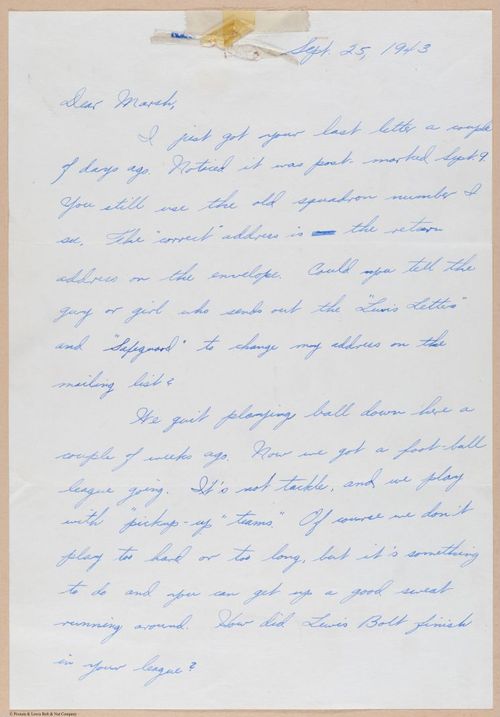 Sept. 25, 1943
Dear Marsh,
I just got your last letter a couple
of days ago. Noticed it was post-marked Sept 9.
You still use the old squadron number I
see. The "correct" address is the return
address on the envelope. Could you tell the
guy or girl who sends out the "Lewis Letter"
and "Safeguard" to change my address on the
mailing list?
We quit playing ball down here a
couple of weeks ago. Now we got a foot-ball
league going. It's not tackle, and we play
with "pickup-up" teams." Of course we don't
play too hard or too long, but it's something
to do and you can get up a good sweat
running around. How did Lewis Bolt finish
in your league?
© Penson & Lewis Bolt & Nut Company